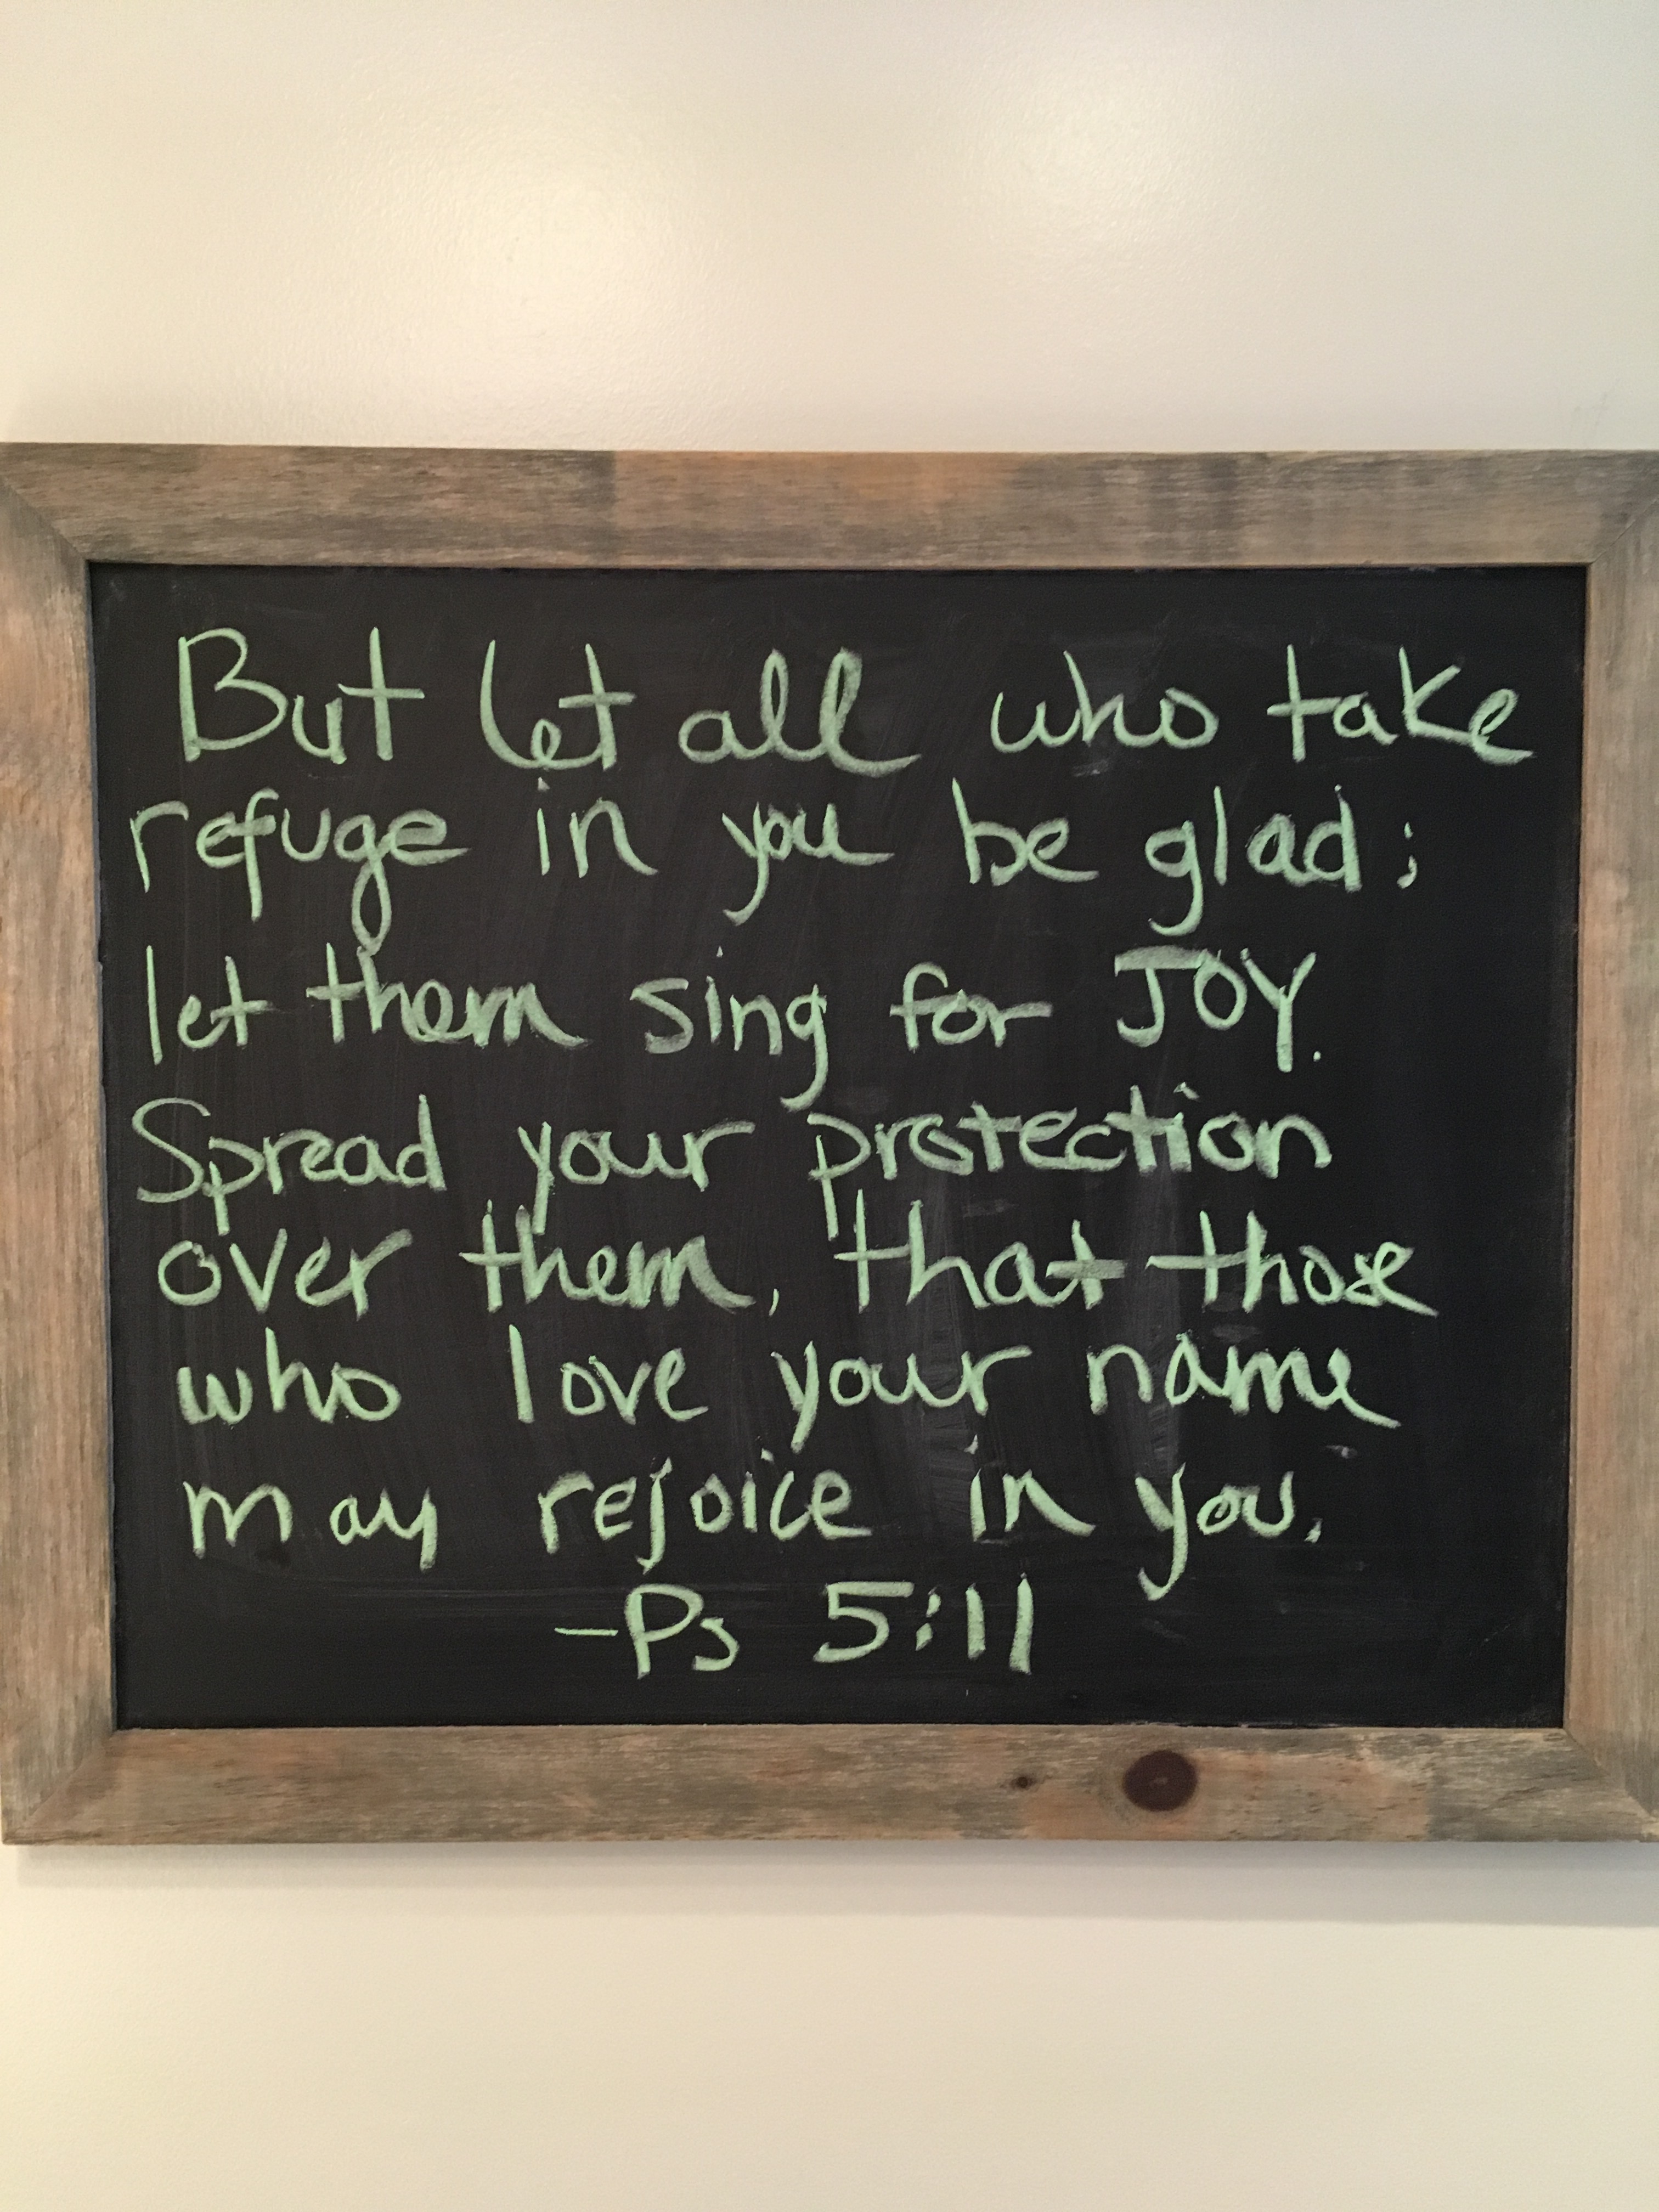 But let all who take
refuge in you be glad;
let them sing for JOY.
Spread your protection
over them, that those
who love your name
may rejoice in you.
-Ps 5:11